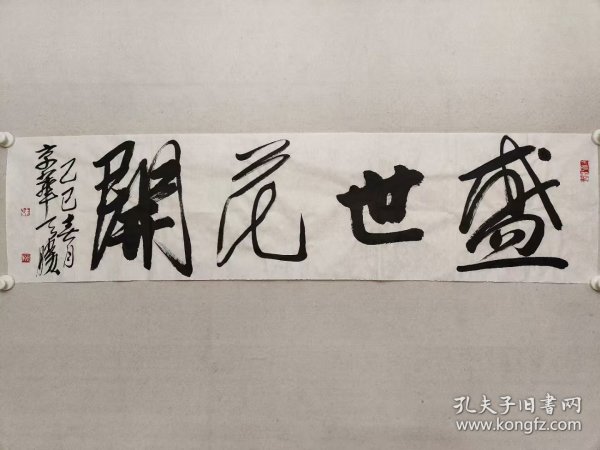 盛世花開
乙巳春月
京華
孔夫子旧書网
www.kongfz.com